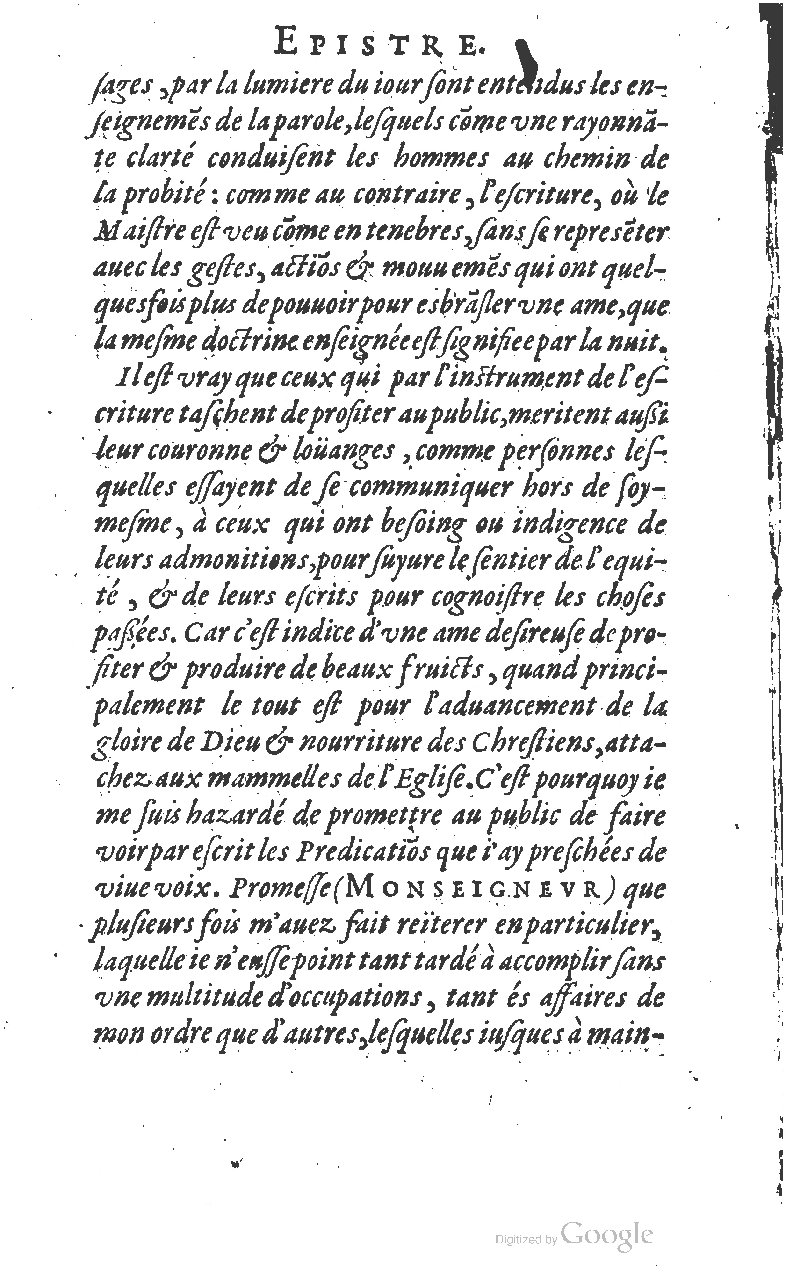 EPISTRE.
ſages, par la lumiere du iour ſont entendus les en-
ſeignemẽs de la parole, leſquels cõme vne rayonnã-
te clarté conduiſent les hommes au chemin de
la probité : comme au contraire, l'eſcriture, où le
Maiſtre eſt veu cõme en tenebres, ſans ſe represẽter
auec les geſtes, actiõs & mouuemẽs qui ont quel-
quesfois plus de pouuoir pour esbrãſler vne ame, que
la meſme doctrine enſeignée eſt ſignifiee par la nuit.
Il eſt vray que ceux qui par l'inſtrument de l'eſ-
criture taſchent de profiter au public, meritent auſſi
leur couronne & loüanges, comme perſonnes leſ-
quelles eſſayent de ſe communiquer hors de ſoy-
meſme, à ceux qui ont beſoing ou indigence de
leurs admonitions, pour ſuyure le ſentier de l'equi-
té, & de leurs eſcrits pour cognoiſtre les choſes
paſſées. Car c'eſt indice d'vne ame deſireuſe de pro-
fiter & produire de beaux fruicts, quand princi-
palement le tout eſt pour l'aduancement de la
gloire de Dieu & nourriture des Chreſtiens, atta-
chez aux mammelles de l'Egliſe. C'eſt pourquoy ie
me ſuis hazardé de promettre au public de faire
voir par eſcrit les Predicatiõs que i'ay preſchées de
viue voix. Promeſſe (MONSEIGNEVR) que
pluſieurs fois m'auez fait reïterer en particulier,
laquelle ie n'euſſe point tant tardé à accomplir ſans
vne multitude d'occupations, tant és affaires de
mon ordre que d'autres, leſquelles iuſques à main-
Digitized by Google